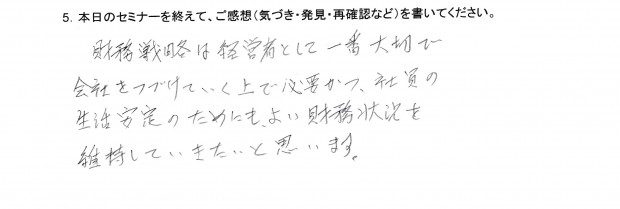 5. 本日のセミナーを終えて、ご感想（気づき・発見・再確認など）を書いてください。
財務戦略は経営者として一番大切で
会社をつづけていく上で必要かつ、社員の
生活安定のためにも、よい財務状況を
維持していきたいと思います。